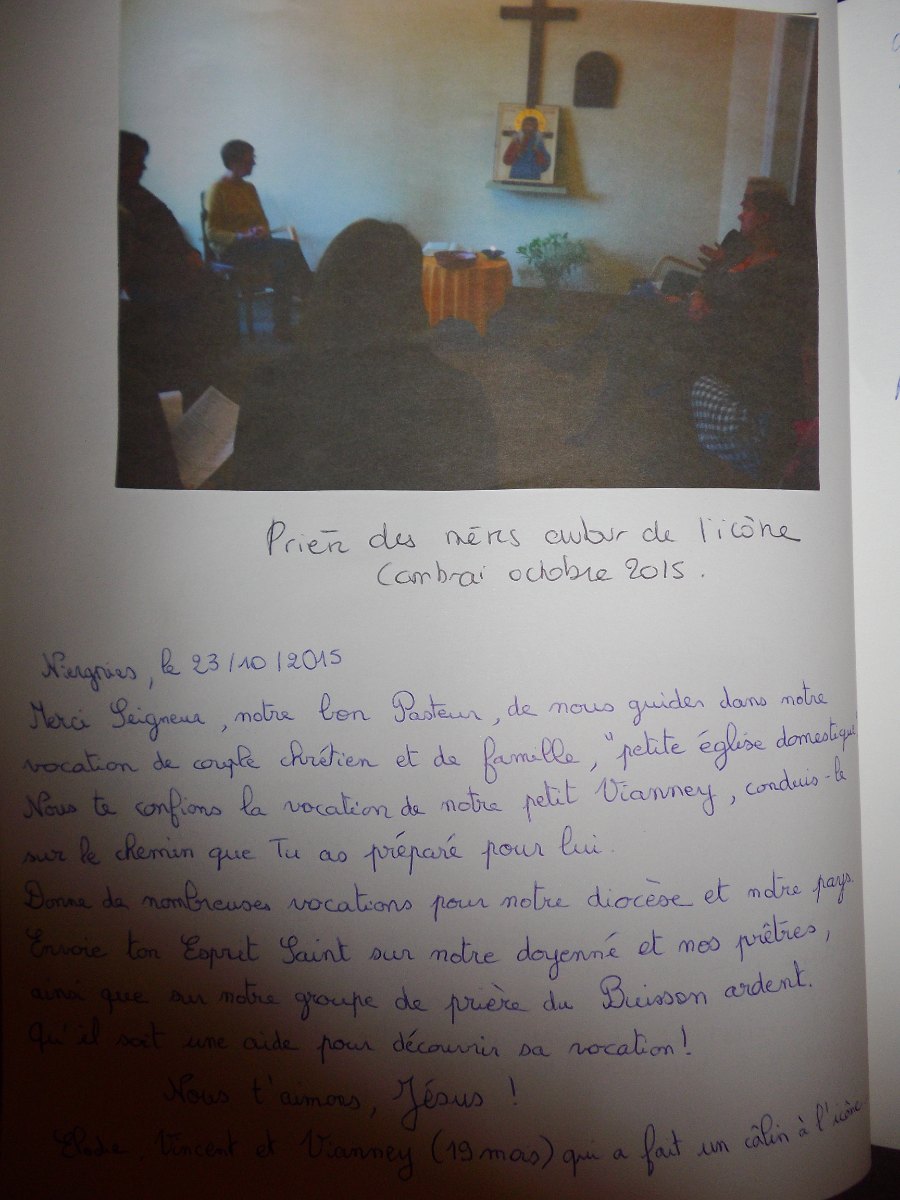 Prière des mères autour de l'icône
Cambrai octobre 2015.
Niergnies, le 23/10/2015
Merci Seigneur, notre bon Pasteur, de nous guider dans notre
vocation de couple chrétien et de famille, "petite église domestique"
Nous te confions la vocation de notre petit Vianney, conduis-le
sur le chemin que Tu as préparé pour lui.
Donne de nombreuses vocations pour notre diocèse et notre pays.
Envoie ton Esprit Saint sur notre doyenné et nos prêtres,
ainsi que sur notre groupe de prière du Buisson ardent.
Qu'il soit une aide pour découvrir sa vocation!
Nous t'aimons, Jésus !
Elodie, Vincent et Vianney (19 mois) qui a fait un câlin à l'icône